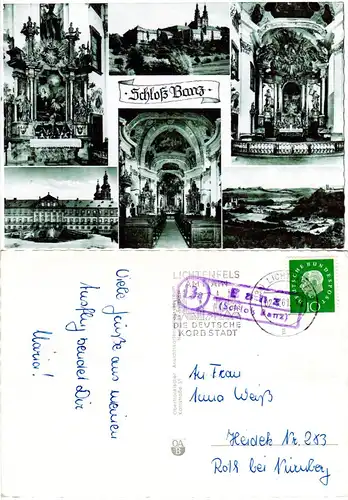 Schloß Banz
Viele Grüße aus meinem
Ausflug sendet Dir
Maria!
LICHTENFELS
DIE DEUTSCHE
KORBSTADT
13a
Banz
(Schloß Banz)
DEUTSCHE BUNDESPOST
10
An Frau
Anna Weiß
Heideck Nr. 283
Roth bei Nürnberg